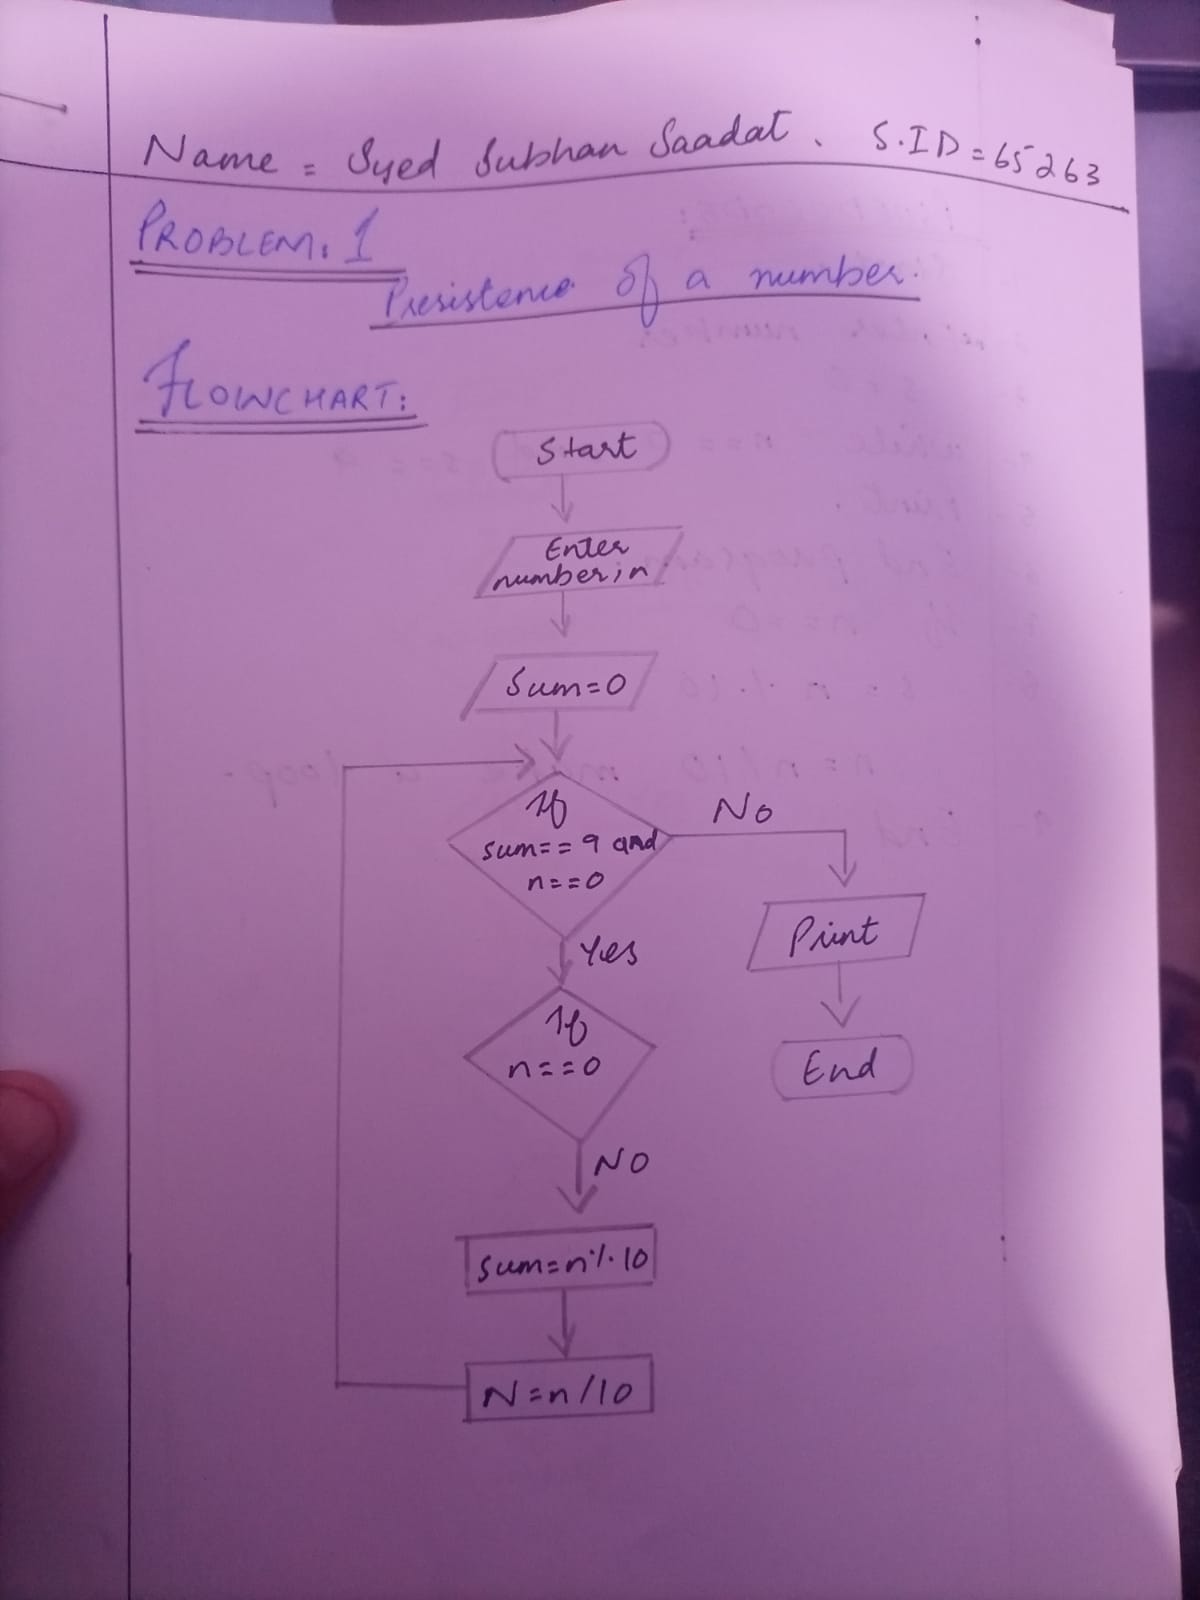 Name = Syed Subhan Saadat. S.ID=65263
PROBLEM. 1
Presistence of a number.
FLOWCHART:
Start
Enter
number;n
Sum=0
If
sum==9 and
n==0
No
Print
End
Yes
If
n==0
NO
Sum=n%10
N=n/10